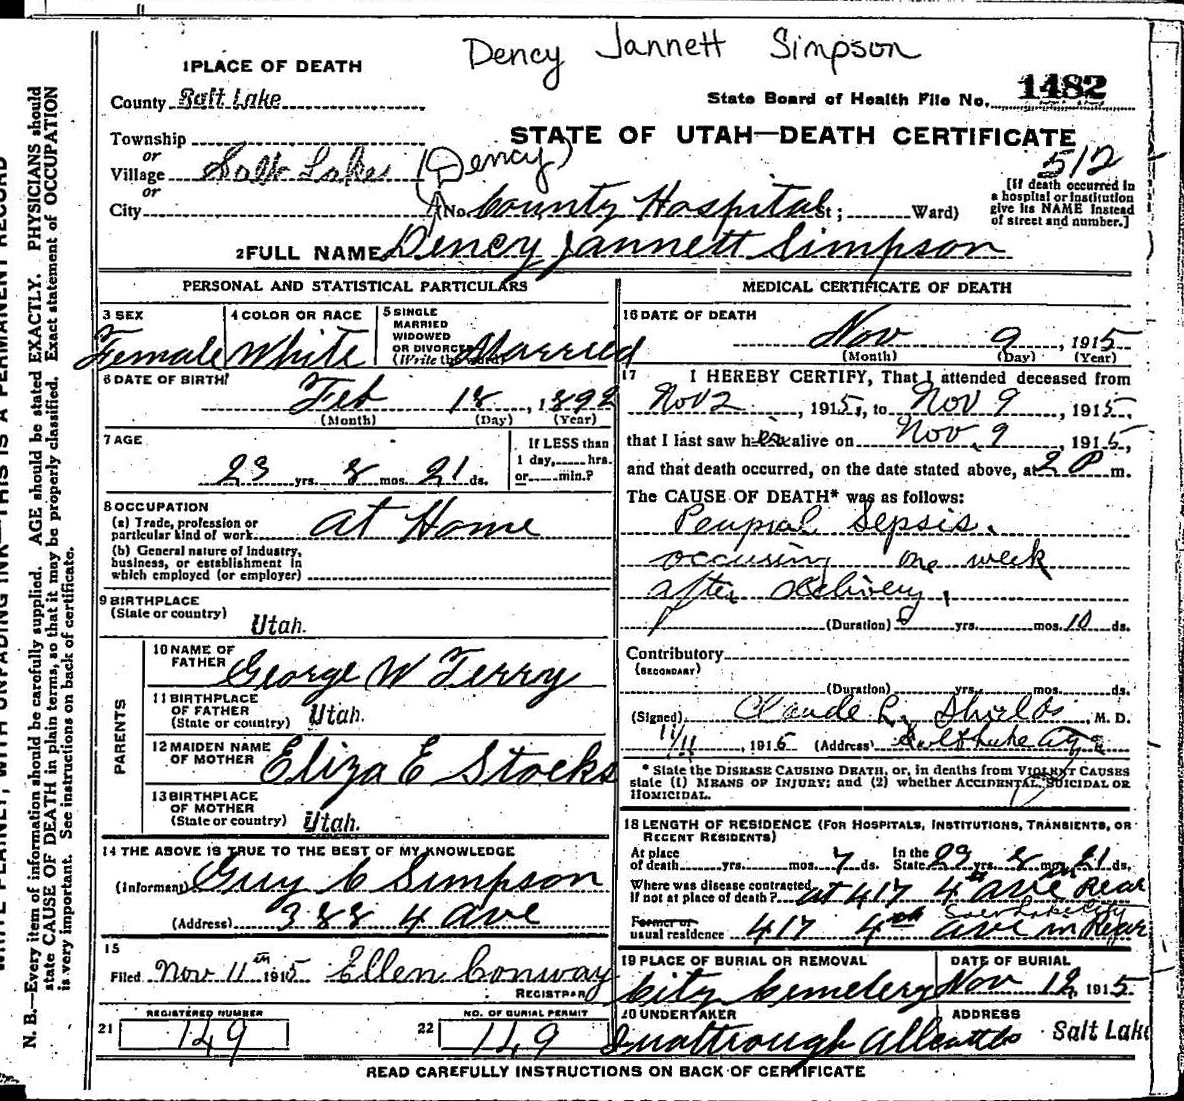 Dency Jannett Simpson
1 PLACE OF DEATH
County Salt Lake
State Board of Health File No. 1482
Township
or
Village Salt Lake (Dency)
or
City
STATE OF UTAH—DEATH CERTIFICATE
512
[If death occurred in
a hospital or institution
give its NAME instead
of street and number.]
(No. County Hospital St; Ward)
2 FULL NAME Dency Jannett Simpson
PERSONAL AND STATISTICAL PARTICULARS
3 SEX
Female
4 COLOR OR RACE
White
5 SINGLE
MARRIED
WIDOWED
OR DIVORCED
(Write the word)
Married
6 DATE OF BIRTH
Feb 18, 1892
(Month) (Day) (Year)
7 AGE
23 yrs. 8 mos. 21 ds.
If LESS than
1 day, hrs.
or min.?
8 OCCUPATION
(a) Trade, profession or
particular kind of work At Home
(b) General nature of industry,
business, or establishment in
which employed (or employer)
9 BIRTHPLACE
(State or country)
Utah.
PARENTS
10 NAME OF
FATHER
George W Terry
11 BIRTHPLACE
OF FATHER
(State or country) Utah.
12 MAIDEN NAME
OF MOTHER
Eliza E Stocks
13 BIRTHPLACE
OF MOTHER
(State or country) Utah.
14 THE ABOVE IS TRUE TO THE BEST OF MY KNOWLEDGE
(Informant) Guy C Simpson
(Address) 388 4 Ave
15
Filed Nov 11th 1915 Ellen Conway
REGISTRAR
21
REGISTERED NUMBER
149
22
NO. OF BURIAL PERMIT
149
MEDICAL CERTIFICATE OF DEATH
16 DATE OF DEATH
Nov 9, 1915
(Month) (Day) (Year)
17 I HEREBY CERTIFY, That I attended deceased from
Nov 2, 1915, to Nov 9, 1915,
that I last saw her alive on Nov. 9 1915,
and that death occurred, on the date stated above, at 2 P m.
The CAUSE OF DEATH* was as follows:
Sepsis.
occusing one week
after delivery.
(Duration) yrs. mos. 10 ds.
Contributory
(SECONDARY)
(Duration) yrs. mos. ds.
(Signed) Claude L. Shields, M. D.
11/11, 1915 (Address) Salt Lake City
* State the DISEASE CAUSING DEATH, or, in deaths from VIOLENT CAUSES
state (1) MEANS OF INJURY; and (2) whether ACCIDENTAL, SUICIDAL OR
HOMICIDAL.
18 LENGTH OF RESIDENCE (FOR HOSPITALS, INSTITUTIONS, TRANSIENTS, OR
RECENT RESIDENTS)
At place
of death yrs. mos. 7 ds.
In the
State 23 yrs. 8 mos. 21 ds.
Where was disease contracted
if not at place of death? at 417 4th Ave Rear
Salt Lake City
Former or
usual residence 417 4th Ave in Rear
19 PLACE OF BURIAL OR REMOVAL
City Cemetery
DATE OF BURIAL
Nov 12, 1915
20 UNDERTAKER
ADDRESS
Salt Lake
READ CAREFULLY INSTRUCTIONS ON BACK OF CERTIFICATE
N. B.—Every item of information should be carefully supplied. AGE should be stated EXACTLY. PHYSICIANS should
state CAUSE OF DEATH in plain terms, so that it may be properly classified. Exact statement of OCCUPATION
is very important. See instructions on back of certificate.